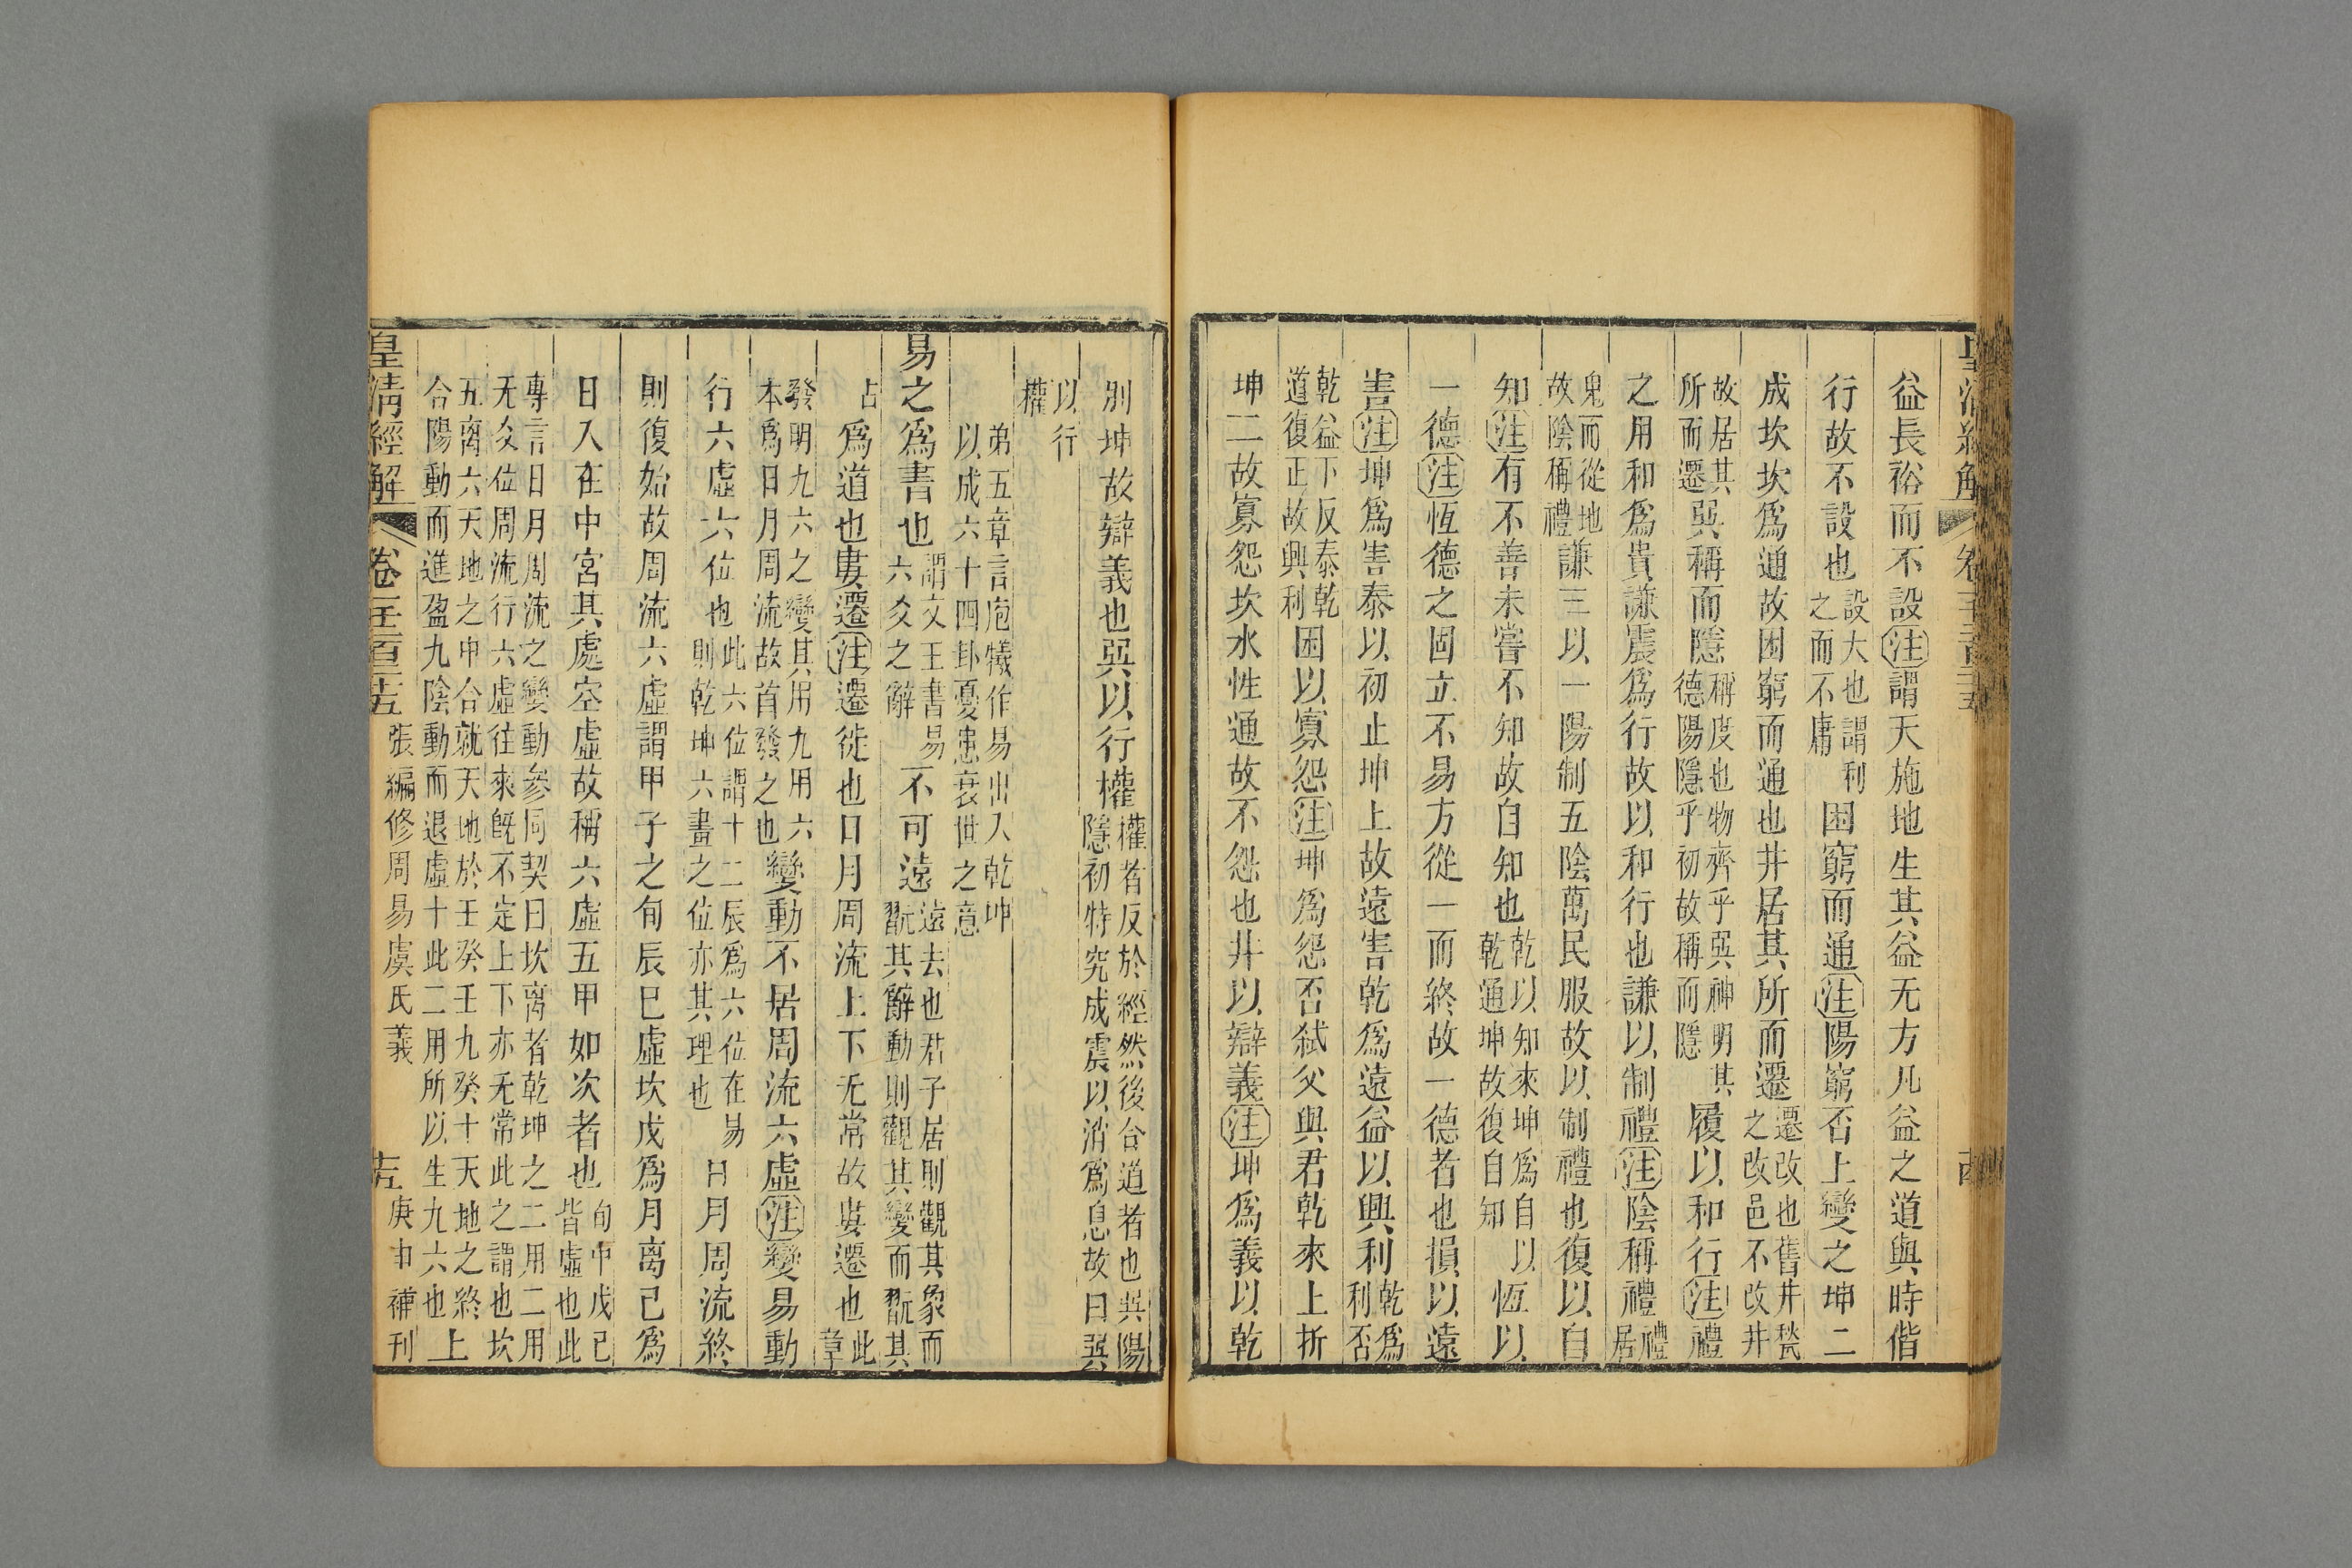 皇清經解 卷 十四
益長裕而不設注謂天施地生其益无方凡益之道與時偕
行故不設也設大也謂利之而不庸困窮而通注陽窮否上變之坤二
成坎坎爲通故困窮而通也井居其所而遷遷改也舊井甃之改邑不改井
故居其所而遷巽稱而隱稱度也物齊乎巽神明其德陽隱乎初故稱而隱履以和行注禮
之用和爲貴謙震爲行故以和行也謙以制禮注陰稱禮禮居
鬼而從地故陰稱禮謙三以一陽制五陰萬民服故以制禮也復以自
知注有不善未嘗不知故自知也乾以知來坤爲自以乾通坤故復自知恆以
一德注恆德之固立不易方從一而終故一德者也損以遠
害注坤爲害泰以初止坤上故遠害乾爲遠益以興利乾爲利否
乾益下反泰乾道復正故興利困以寡怨注坤爲怨否弑父與君乾來上折
坤二故寡怨坎水性通故不怨也井以辯義注坤爲義以乾
別坤故辯義也巽以行權權者反於經然後合道者也巽陽隱初特究成震以消爲息故曰巽
以行權
弟五章言庖犧作易出入乾坤以成六十四卦憂患衰世之意
易之爲書也謂文王書易六爻之辭不可遠遠去也君子居則觀其象而翫其辭動則觀其變而翫其
占爲道也婁遷注遷徙也日月周流上下无常故婁遷也此章
發明九六之變其用九用六本爲日月周流故首發之也變動不居周流六虛注變易動
行六虛六位也此六位謂十二辰爲六位在易則乾坤六畫之位亦其理也日月周流終
則復始故周流六虛謂甲子之旬辰巳虛坎戊爲月离己爲
日入在中宮其處空虛故稱六虛五甲如次者也旬中戊己皆虛也此
專言日月周流之變動參同契曰坎离者乾坤之二用二用无爻位周流行六虛往來旣不定上下亦无常此之謂也坎
五离六天地之中合就天地於壬癸壬九癸十天地之終合陽動而進盈九陰動而退虛十此二用所以生九六也上
皇清經解 卷一千二百二十五 張編修周易虞氏義 十五 庚申補刊